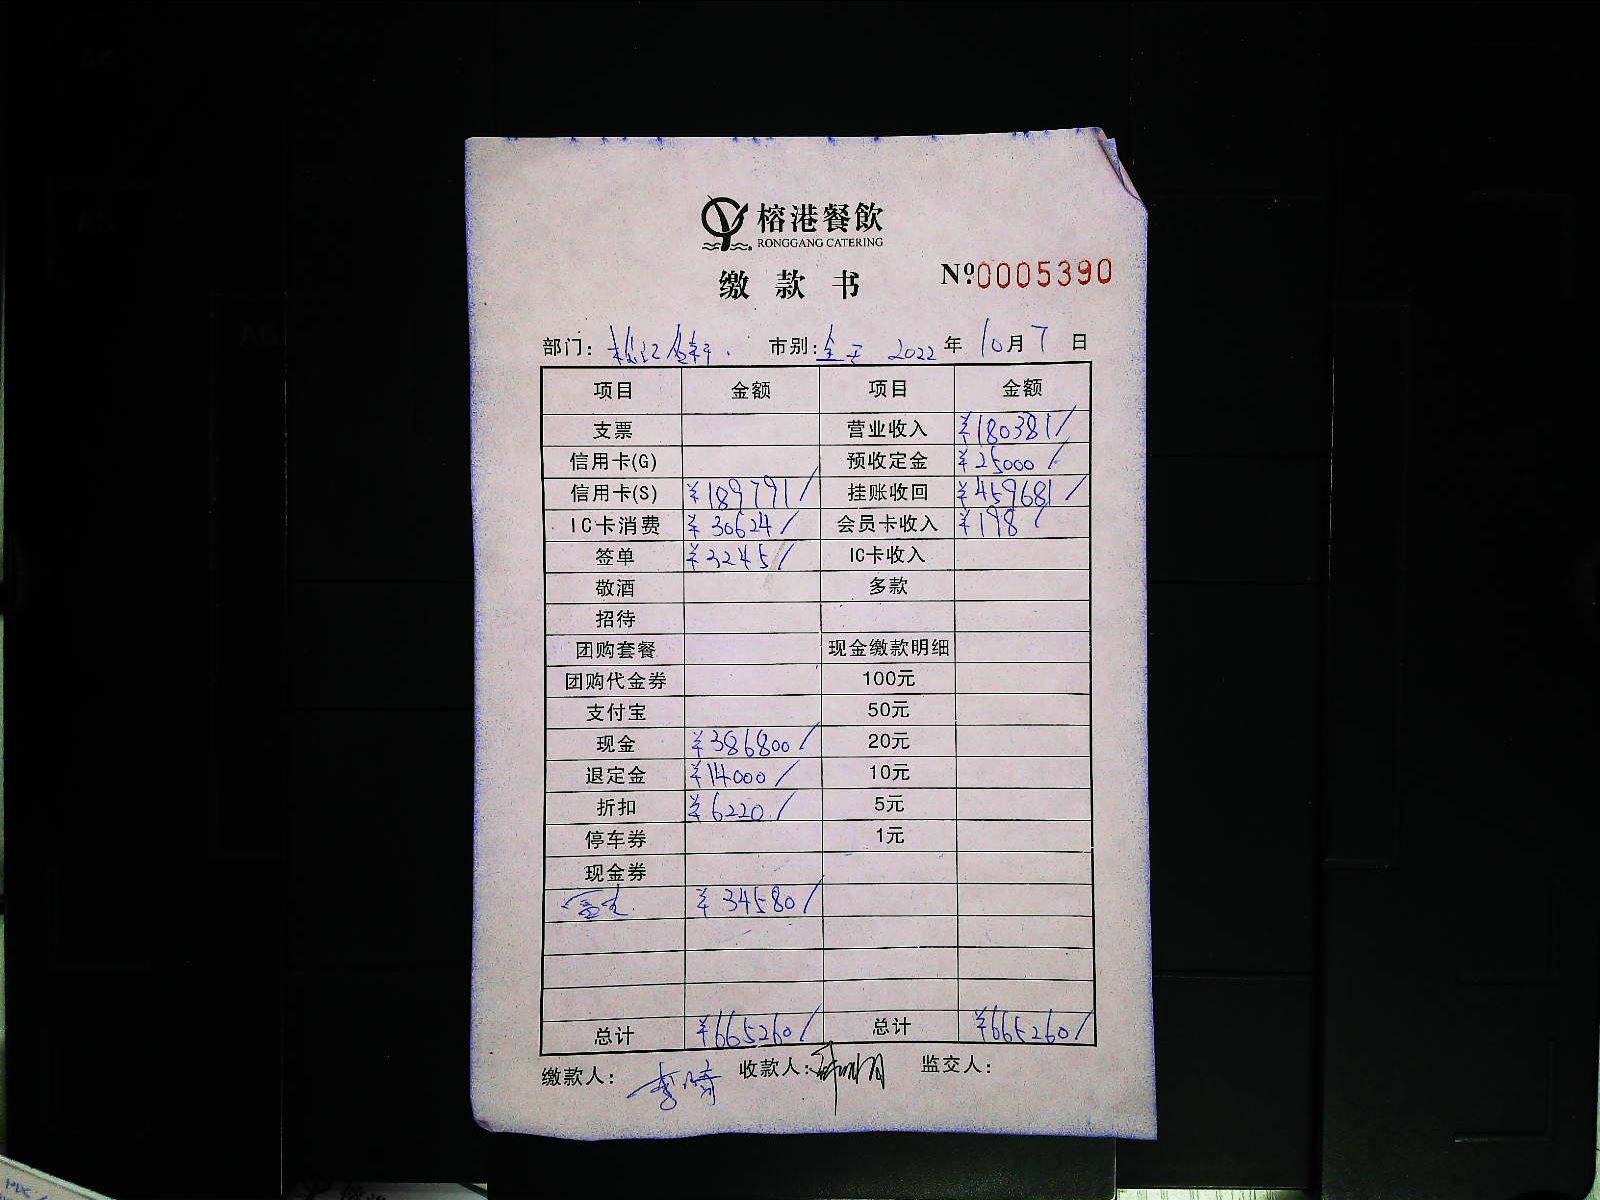 榕港餐飲
RONGGANG CATERING
缴款书
Nº:0005390
部门： 市别：全天 2022年10月7日
项目 金额 项目 金额
支票 营业收入 ¥180381/
信用卡(G) 预收定金 ¥25000/
信用卡(S) ¥189791/ 挂账收回 ¥459681/
IC卡消费 ¥30624/ 会员卡收入 ¥198/
签单 ¥3245/ IC卡收入
敬酒 多款
招待
团购套餐 现金缴款明细
团购代金券 100元
支付宝 50元
现金 ¥386800/ 20元
退定金 ¥14000/ 10元
折扣 ¥6220/ 5元
停车券 1元
现金券
¥34580/
总计 ¥665260/ 总计 ¥665260/
缴款人： 李 收款人： 监交人：